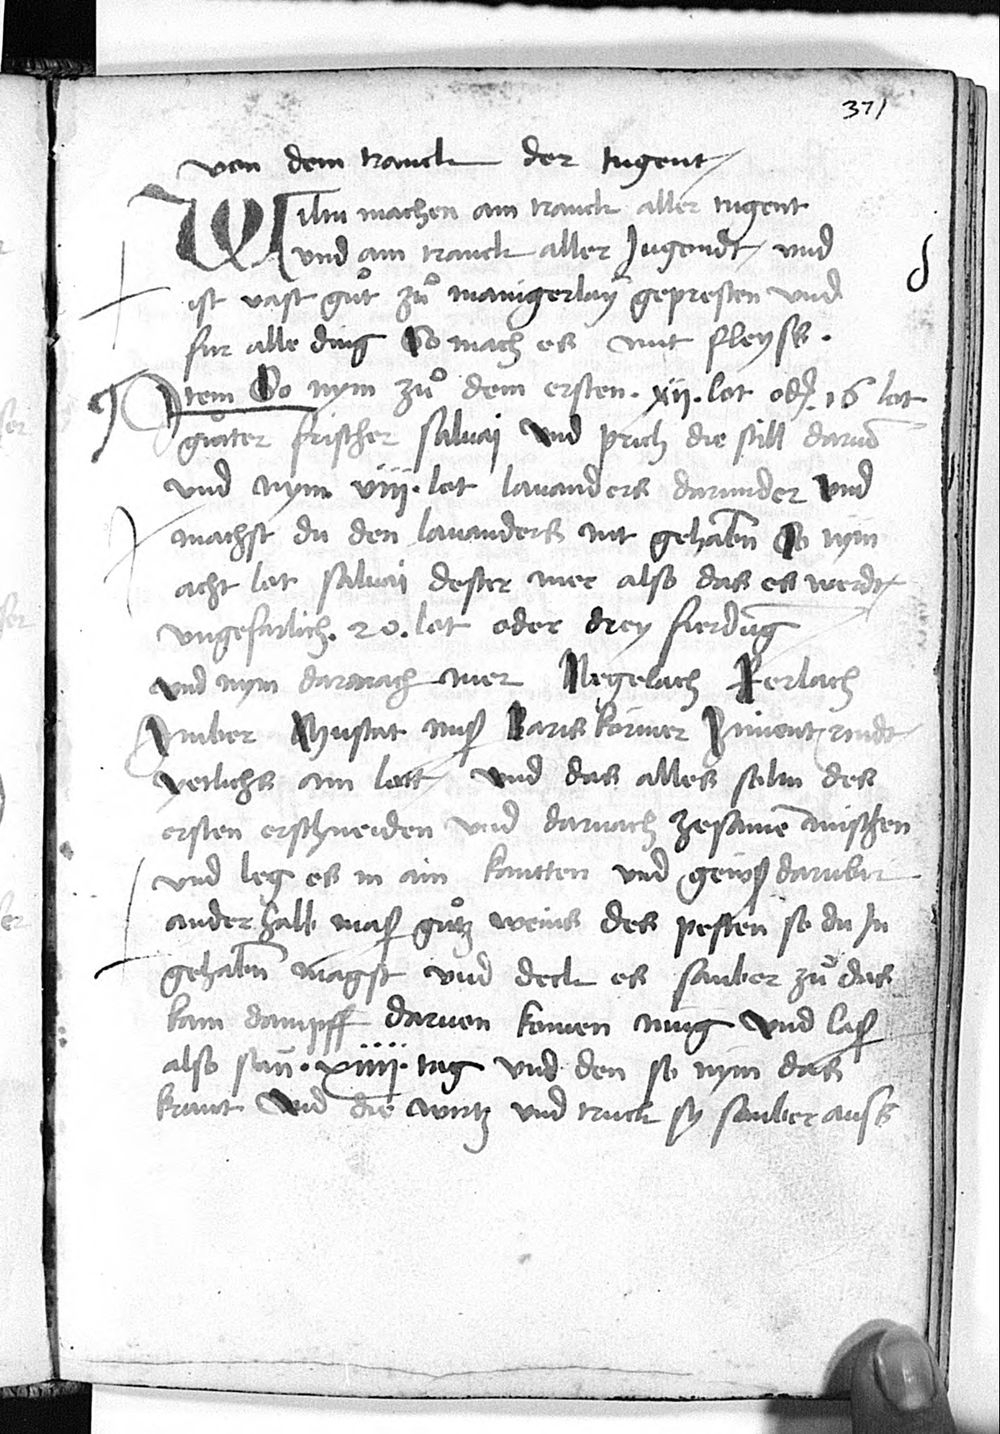 371
von dem tranck der tugent
Wiltu machen ain tranck aller tugent
und ain tranck aller Jugendt und
ist vast guͦt zuͦ manigerlaÿ gepresten und
fur alle ding So mach es mit fleyss.
Item So nym zuͦ dem ersten .xii. lot od 16 lot
guͦter frischer salvai und prich die still darvō
und nym viii. lot lavanders darunder und
machst du den lavanders nit gehabn̄ So nym
acht lot salvai dester mer also das es werdt
ungefarlich. 20. lot oder drey fierdūg
und nym darnach mer Negelach Perlach
Imber Muscat nusz Paris körner Zimentrindt
yetlichs ain lott und das alles soltu des
ersten erschneiden und darnach zesamē mischen
und leg es in ain kantten und geusz darubir
anderhalb masz guͦtz weins des pesten so du In
gehabn̄ magst und deck es sauber zuͦ das
kain dampff darvon komen mug und lasz
also stan̄ . xiiii. tag und den so nym das
kraut und die wurtz und truck sy sauber auss